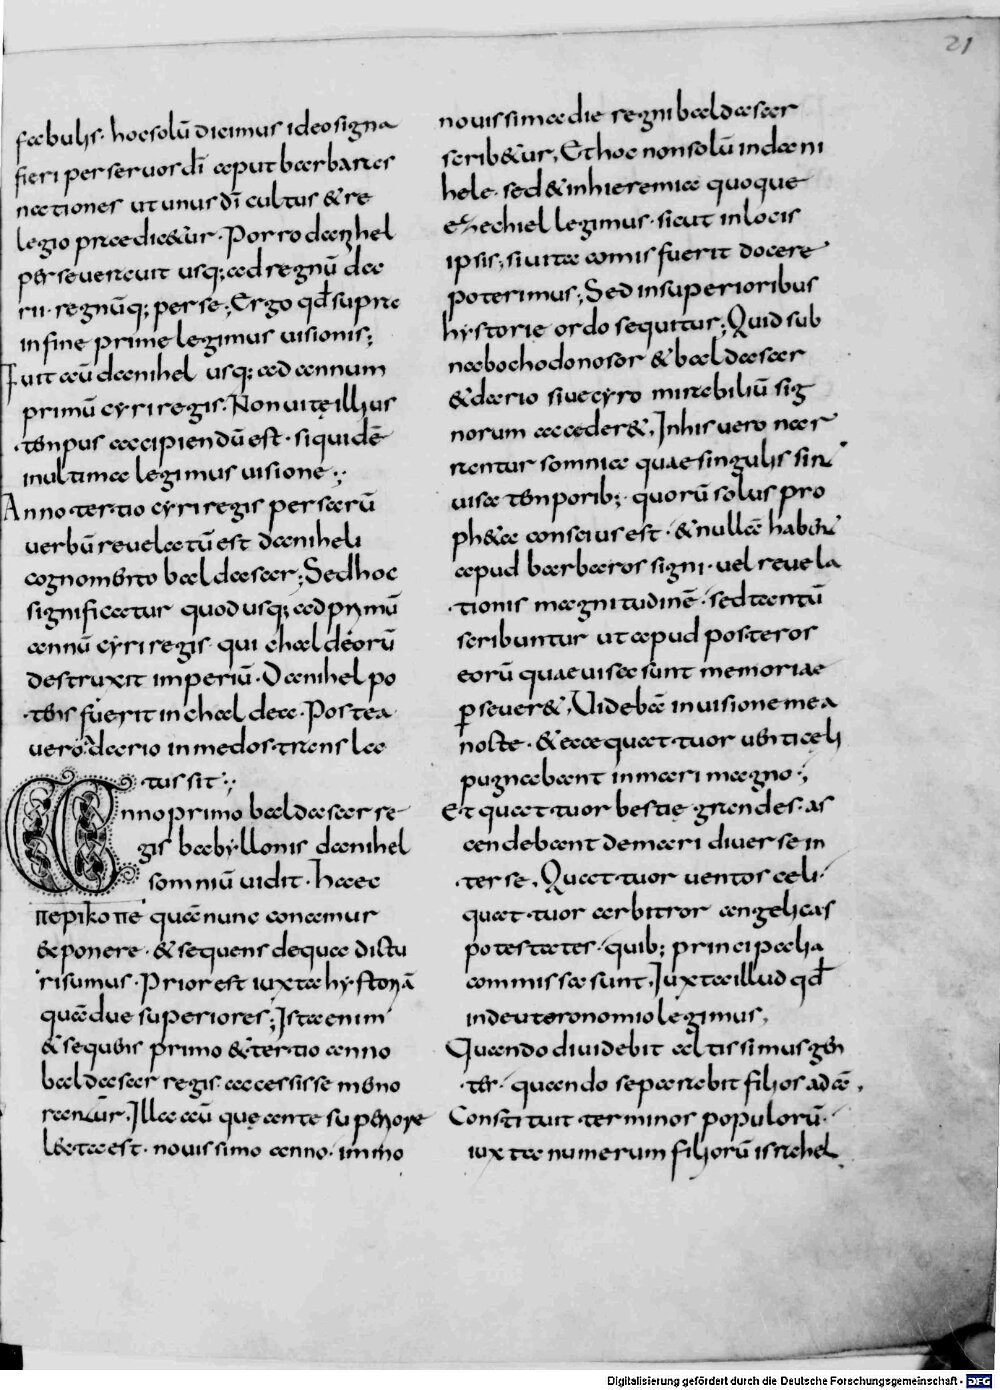 21
fabulis· hoc solū dicimus ideo signa
fieri per seruos dī aput barbaras
nationes ut unus dī cultus & re
legio praedic&ur· Porro danihel
perseuerauit usq; ad regnū da
rii· regnūq; perse; Ergo qđ supra
in fine prime legimus uisionis;
Fuit aū danihel usq; ad annum
primū cyri regis· Non uitę illius
tempus accipiendū est· siquidē
in ultima legimus uisione;
Anno tertio cyri regis persarū
uerbū reuelatū est daniheli
cognomento baldasar; Sed hoc
significatur quod usq; ad primū
annū cyri regis· qui chaldeorū
destruxit imperiū· Danihel po
tens fuerit in chaldea· Postea
uero a dario in medos transla
tus sit;
Anno primo baldasar re
gis babyllonis danihel
somniū uidit· haec
περικοπε quā nunc conamur
exponere· & sequens de qua dictu
ri sumus· Prior est iuxta hystoriā
quā due superiores; Ista enim
& sequens primo & tertio anno
baldasar regis accessisse memo
rantur· Illa aū quę ante superiore
lecta est· nouissimo anno· immo
nouissima die regni baldasar
scrib&ur, Et hoc non solū in dani
hele· sed & in hieremia quoque
ezechiel legimus· sicut in locis
ipsis, si uita comis fuerit docere
poterimus; Sed in superioribus
hystorię ordo sequitur; Quid sub
nabochodonosor & baldasar
& dario siue cyro mirabiliū sig
norum acceder&, In his uero nar
rantur somnia quae singulis sin
uisa temporib; quorū solus pro
ph&a conscius est· & nullā haben
apud barbaros signi· uel reuela
tionis magnitudinē· sed tantū
scribuntur ut apud posteros
eorū quae uisa sunt memoriae
ꝑseuer&, Uidebā in uisione mea
nocte· & ecce quattuor uenti cęli
pugnabant in mari magno;
Et quattuor bestię grandes as
cendebant de mari diuerse in
ter se, Quattuor uentos cęli·
quattuor arbitror angelicas
potestates· quib; principalia
commissa sunt, Iuxta illud qđ
in deuteronomio legimus,
Quando diuidebit altissimus gen
tes· quando separabit filios adā,
Constituit terminos populorū·
iuxta numerum filiorū israhel,
Digitalisierung gefördert durch die Deutsche Forschungsgemeinschaft - DFG